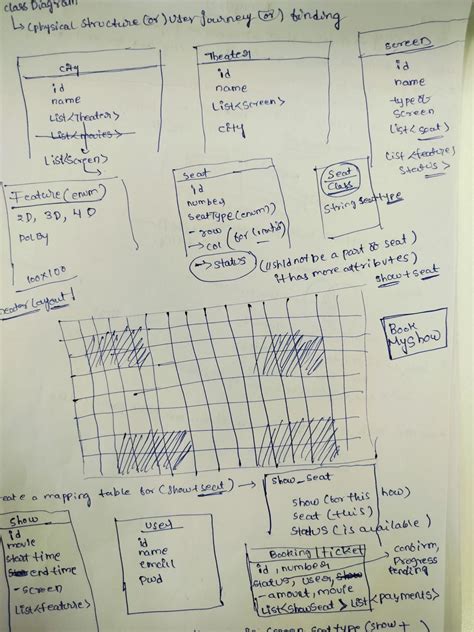 class Diagram
↳ (physical structure (or) user journey (or) binding
city
id
name
List<Theater>
List<movies>
List<Screen>
Theater
id
name
List<Screen>
city
Screen
id
name
type of
screen
List<seat>
List<feature>
status>
Feature (enum)
2D, 3D, 4D
Dolby
100x100
Layout
seat
id
number
seatType (enum)
- row
→ col
→ status
(// shld not be a part of seat)
it has more attributes)
show + seat
Seat
Class
String SeatType
Book
MyShow
create a mapping table for (show + seat) →
show_seat
show (for this show)
seat (this)
status (is available)
show
id
movie
start time
end time
- screen
List<feature>
user
id
name
email
pwd
Booking | Ticket
id, number
status, user, show
- amount, movie
List<ShowSeat> List<payments>
confirm,
Progress
Pending
Screen seat type (show +